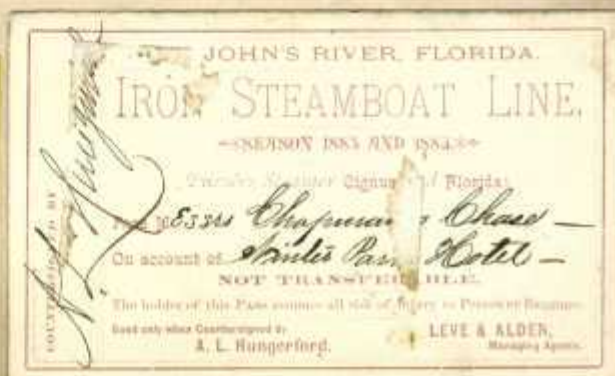 JOHN'S RIVER, FLORIDA.
IRON STEAMBOAT LINE,
SEASON 1883 AND 1884
Steamer Cygnus Florida:
Messrs Chapman & Chase —
On account of Winter Park Hotel —
NOT TRANSFERABLE.
The holder of this Pass assumes all risk of Injury to Person or Baggage.
Good only when Countersigned by
A. L. Hungerford.
LEVE & ALDEN,
Managing Agents.
COUNTERSIGNED BY
A. L. Hungerford